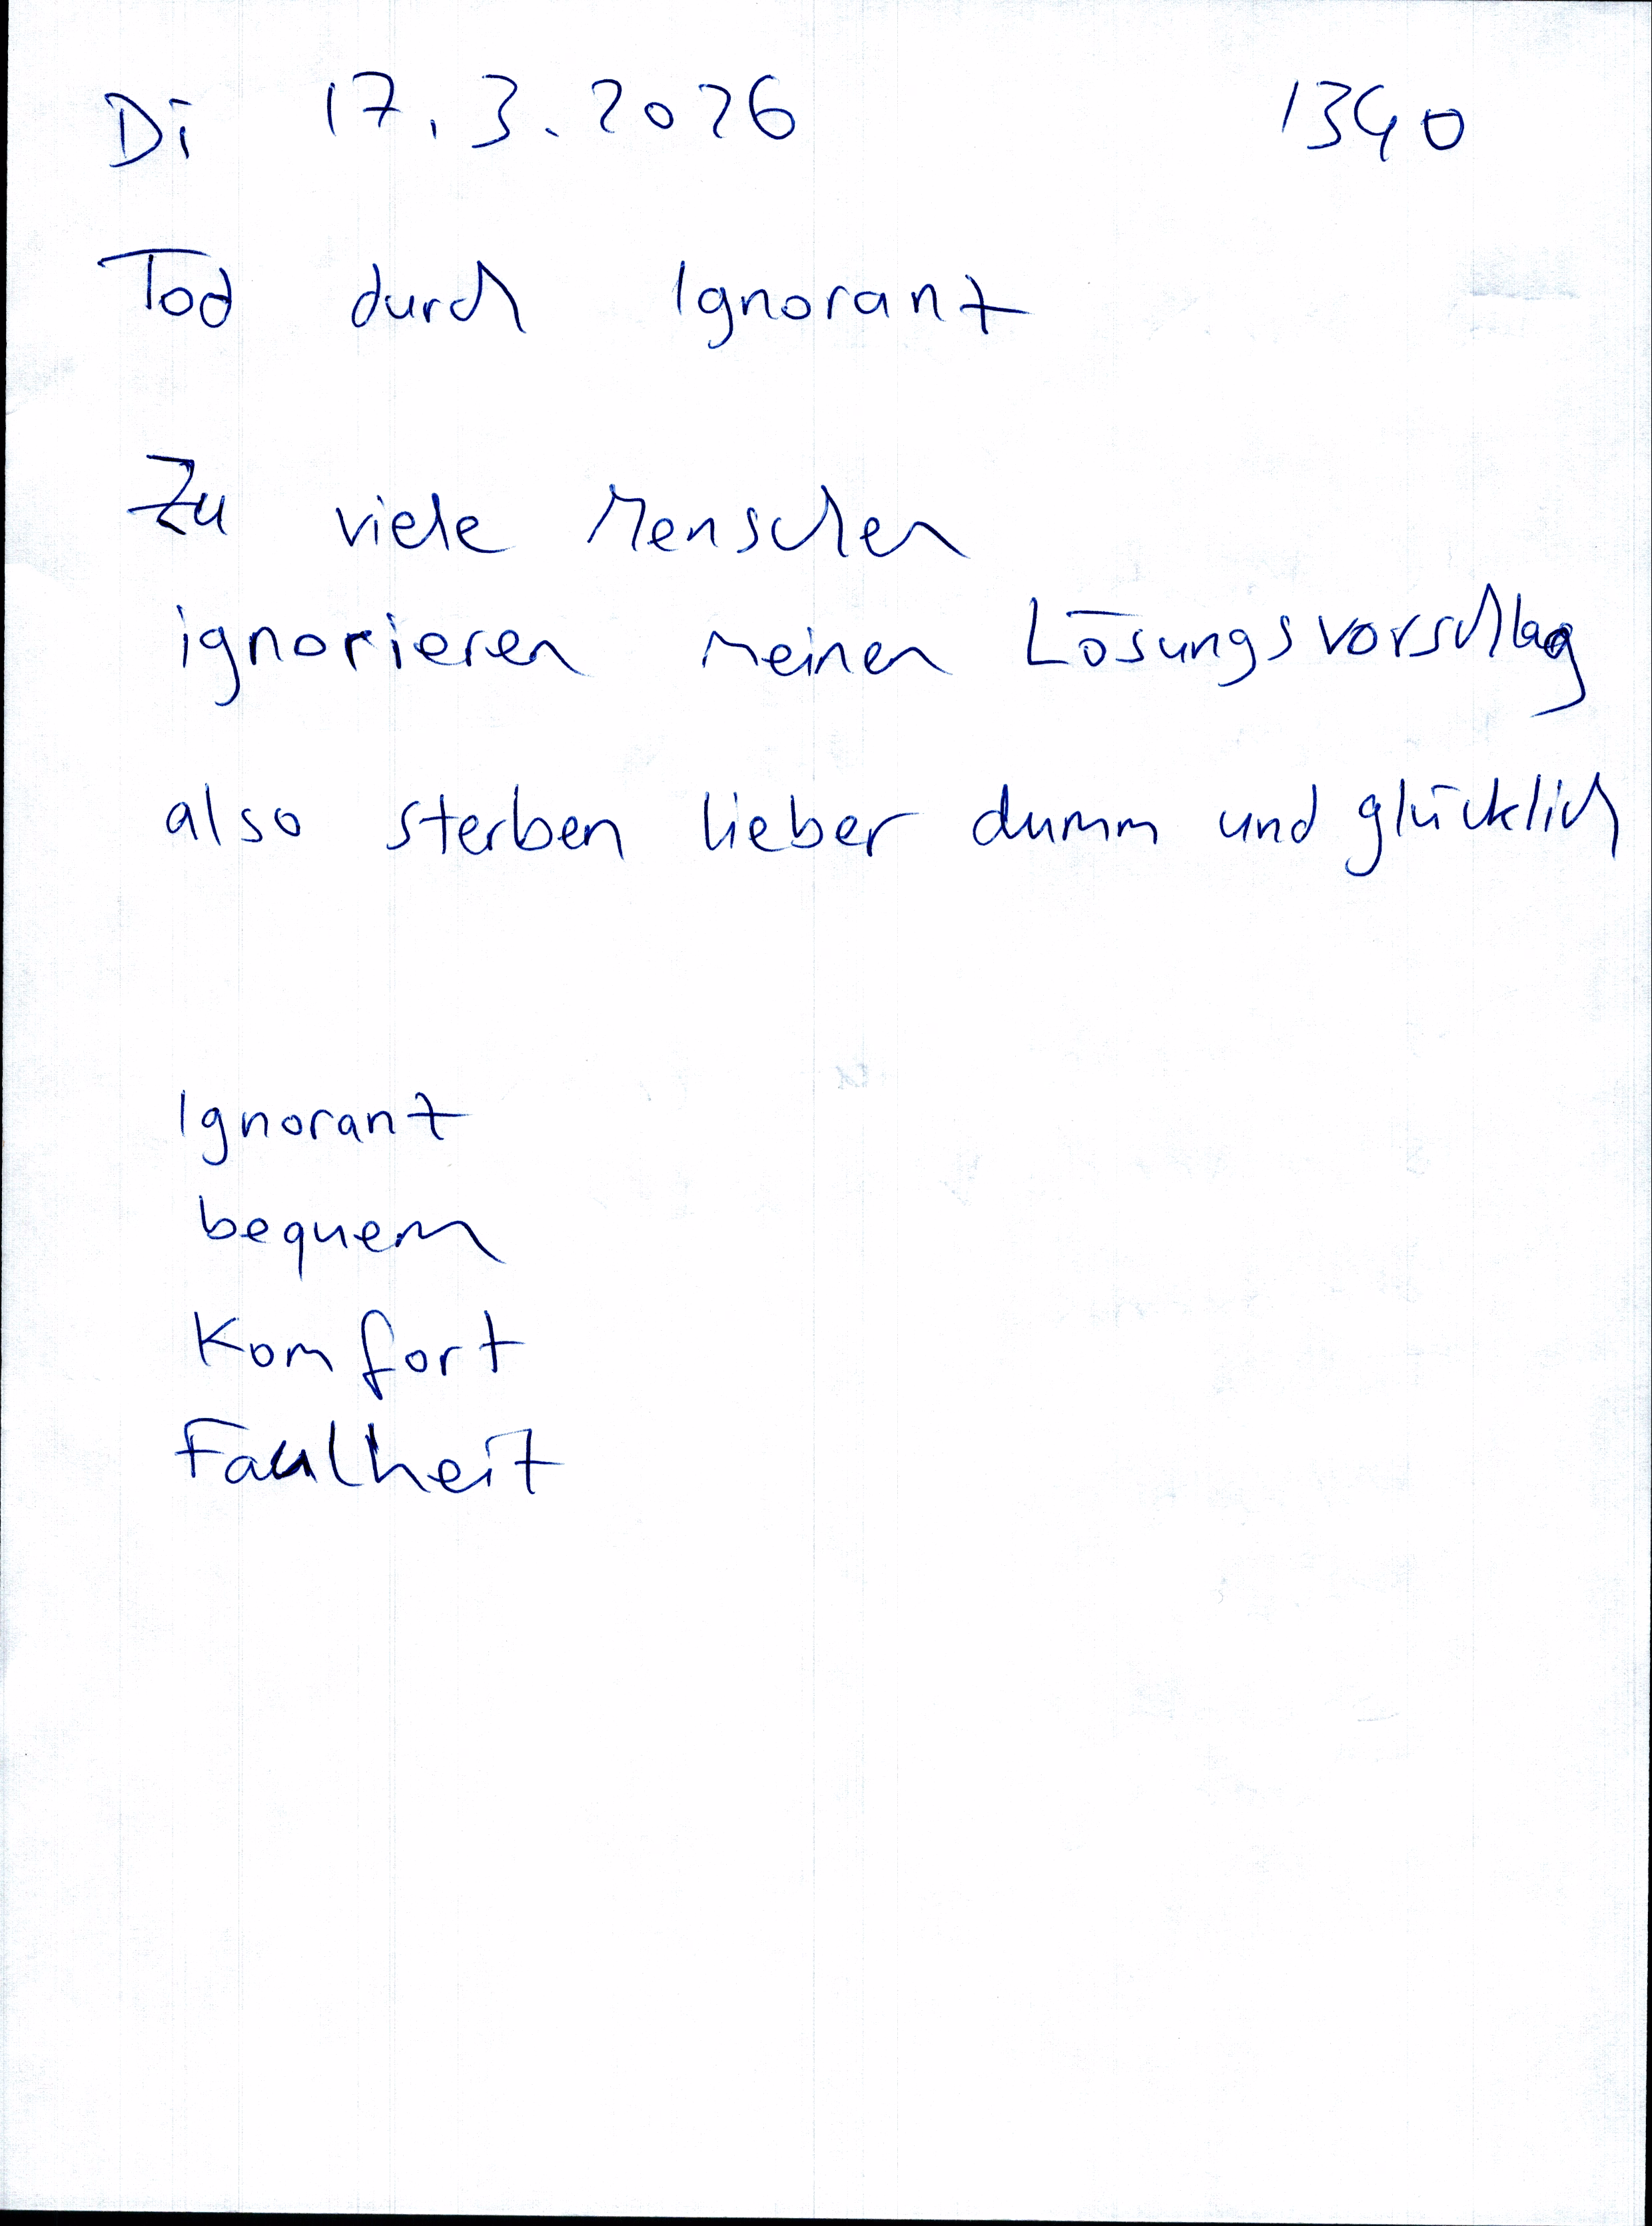 Di 17.3.2026 1340
Tod durch Ignorant
Zu viele Menschen
ignorieren meinen Lösungsvorschlag
also sterben lieber dumm und glücklich
Ignorant
bequem
Komfort
Faulheit